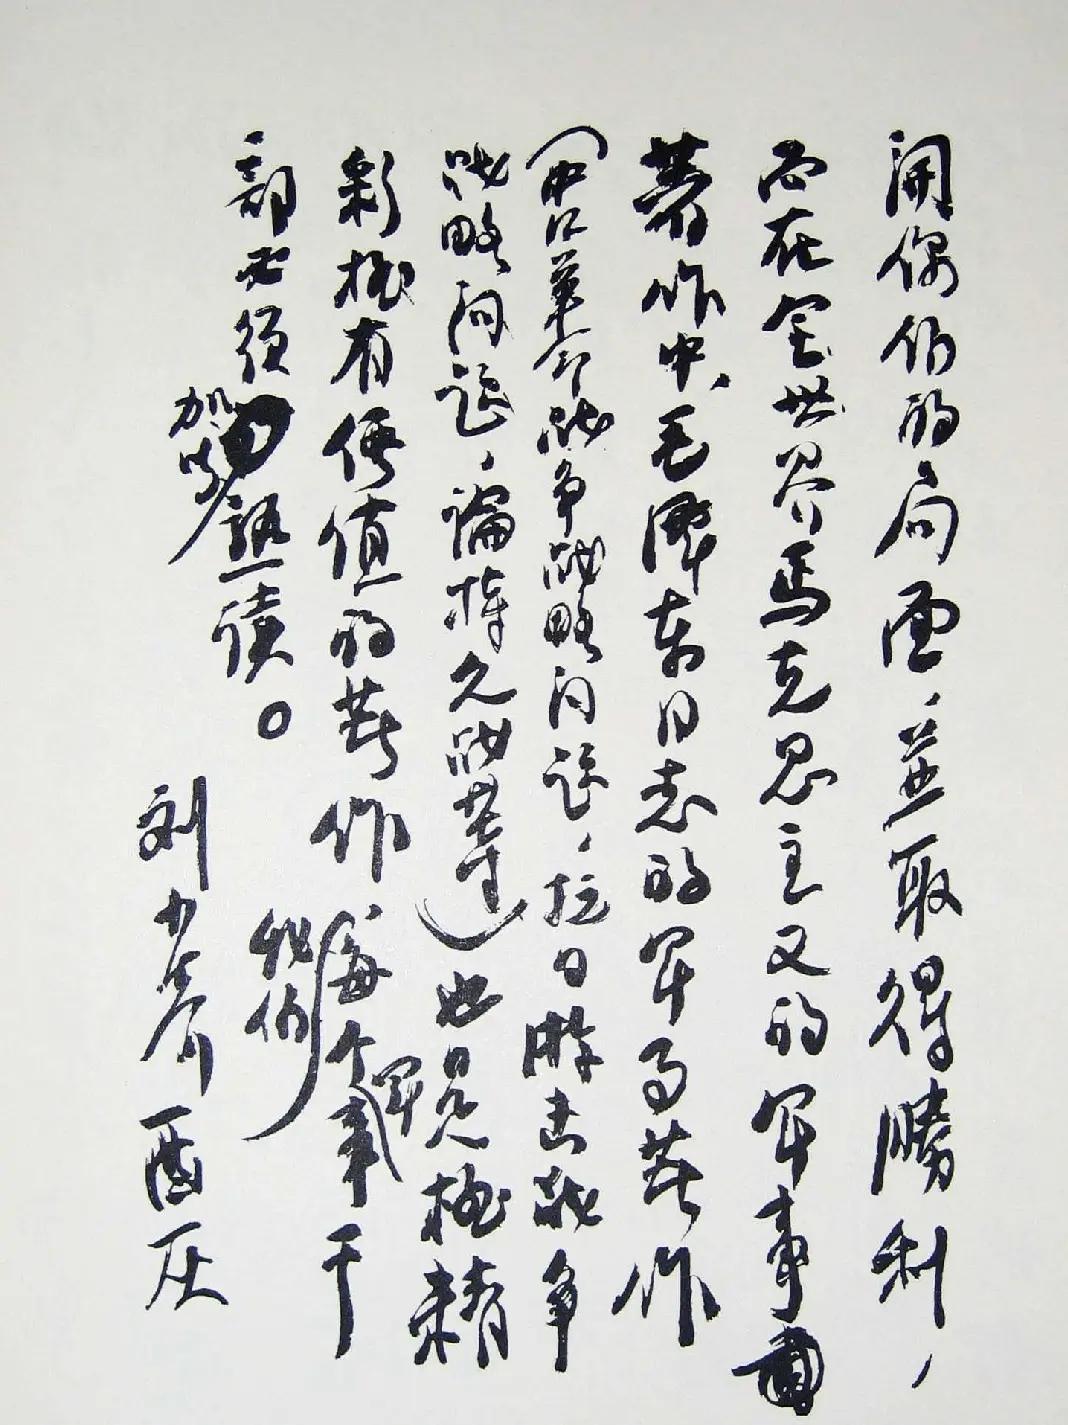 开偶们的局面，並取得勝利，
而在全世界马克思主义的军事
著作中，毛澤东同志的军事著作
（中国革命战争战略问题，抗日游击战争
战略问题，論持久战等）也是极精
彩极有价值的著作，我们每个军事干
部必须加以熟读。
刘少奇